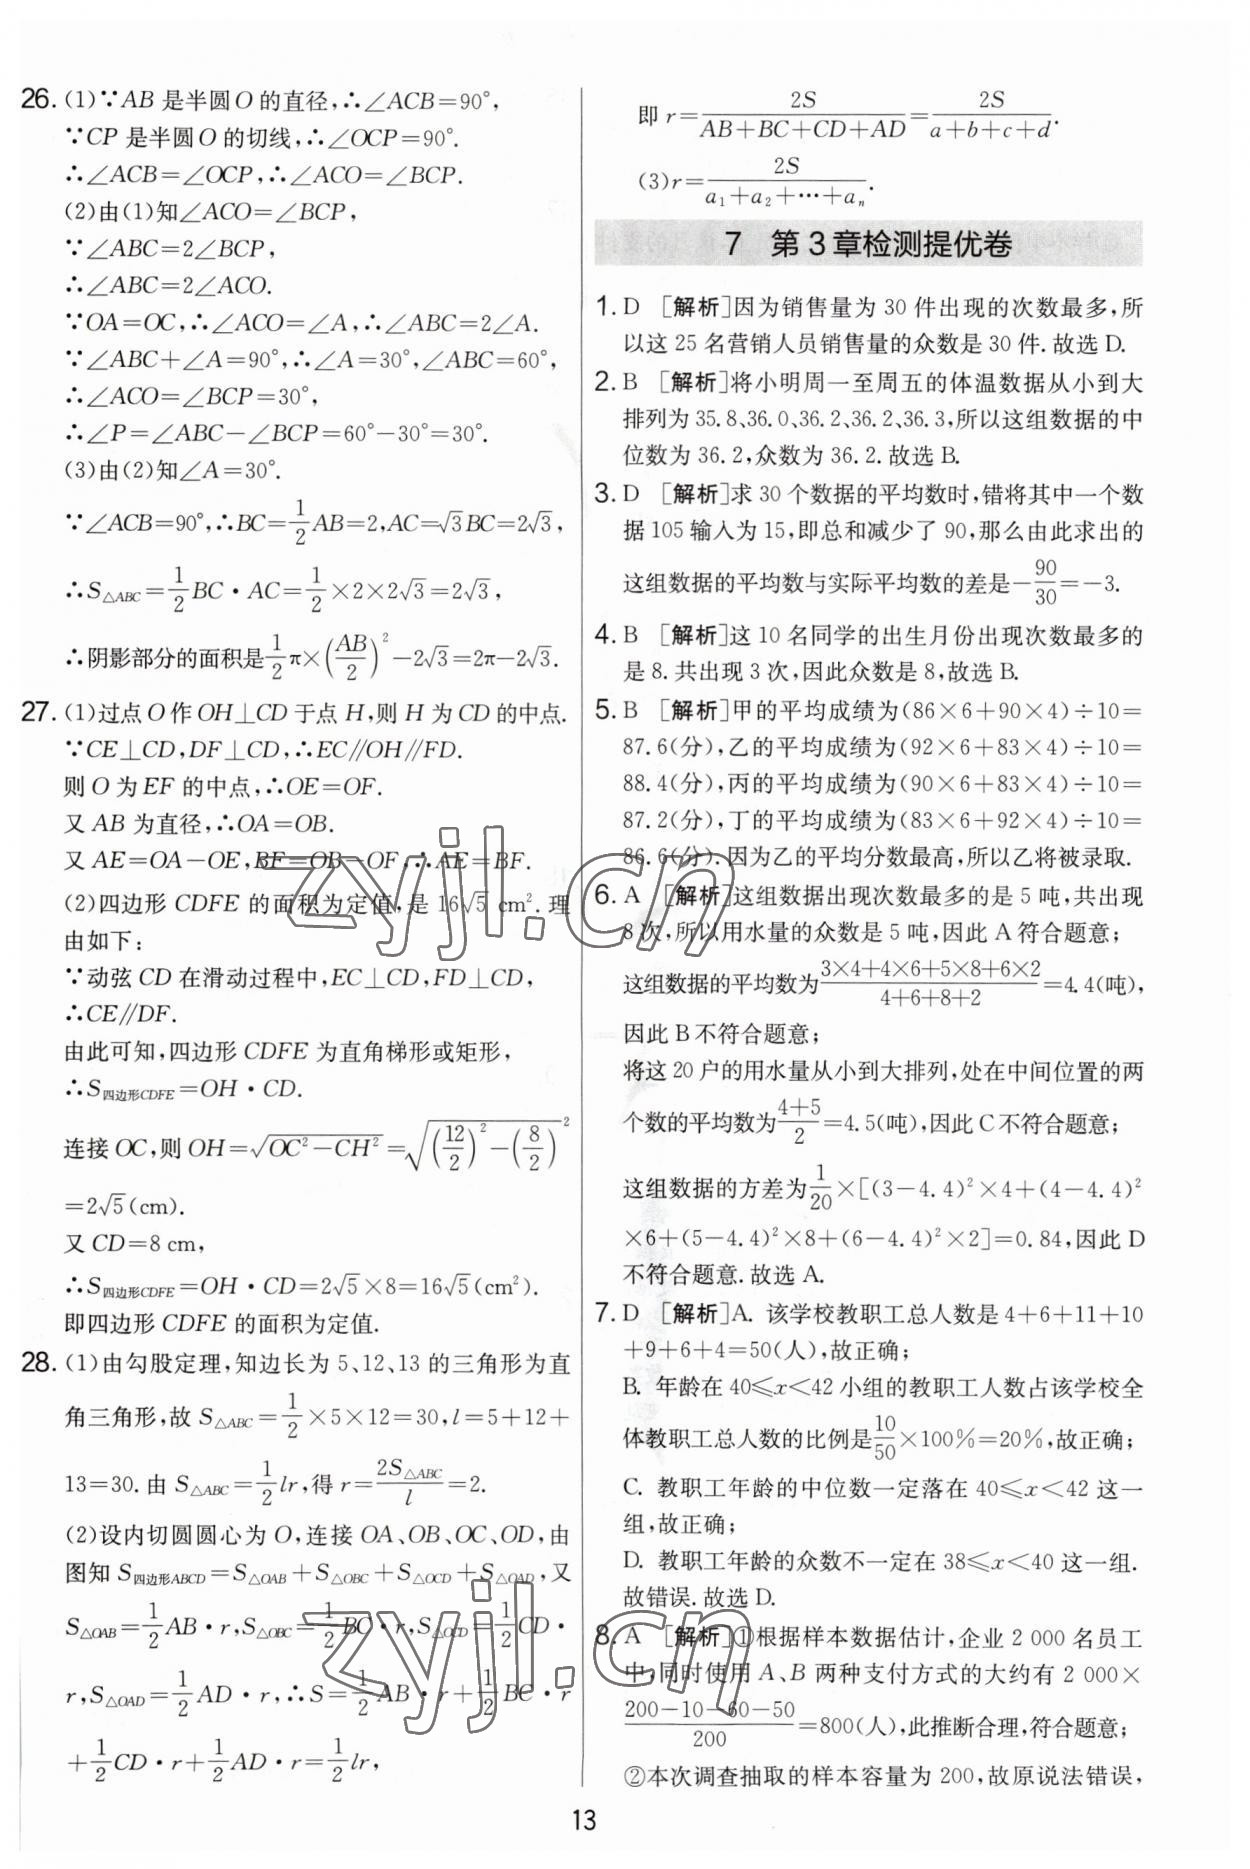 26. (1)∵AB 是半圆 O 的直径,∴∠ACB=90°,
∵CP 是半圆 O 的切线,∴∠OCP=90°.
∴∠ACB=∠OCP,∴∠ACO=∠BCP.
(2)由(1)知∠ACO=∠BCP,
∵∠ABC=2∠BCP,
∴∠ABC=2∠ACO.
∵OA=OC,∴∠ACO=∠A,∴∠ABC=2∠A.
∵∠ABC+∠A=90°,∴∠A=30°,∠ABC=60°,
∴∠ACO=∠BCP=30°,
∴∠P=∠ABC-∠BCP=60°-30°=30°.
(3)由(2)知∠A=30°.
∵∠ACB=90°,∴BC=1/2AB=2,AC=√3BC=2√3,
∴S△ABC=1/2BC·AC=1/2×2×2√3=2√3,
∴阴影部分的面积是1/2π×(AB/2)²-2√3=2π-2√3.
27. (1)过点 O 作 OH⊥CD 于点 H,则 H 为 CD 的中点.
∵CE⊥CD,DF⊥CD,∴EC∥OH∥FD.
则 O 为 EF 的中点,∴OE=OF.
又 AB 为直径,∴OA=OB.
又 AE=OA-OE,BF=OB-OF,∴AE=BF.
(2)四边形 CDFE 的面积为定值,是 16√5 cm².理
由如下:
∵动弦 CD 在滑动过程中,EC⊥CD,FD⊥CD,
∴CE∥DF.
由此可知,四边形 CDFE 为直角梯形或矩形,
∴S四边形CDFE=OH·CD.
连接 OC,则 OH=√(OC²-CH²)=√((12/2)²-(8/2)²)²
=2√5(cm).
又 CD=8 cm,
∴S四边形CDFE=OH·CD=2√5×8=16√5(cm²).
即四边形 CDFE 的面积为定值.
28. (1)由勾股定理,知边长为 5、12、13 的三角形为直
角三角形,故 S△ABC=1/2×5×12=30,l=5+12+
13=30.由 S△ABC=1/2lr,得 r=2S△ABC/l=2.
(2)设内切圆圆心为 O,连接 OA、OB、OC、OD,由
图知 S四边形ABCD=S△OAB+S△OBC+S△OCD+S△OAD,又
S△OAB=1/2AB·r,S△OBC=1/2BC·r,S△OCD=1/2CD·
r,S△OAD=1/2AD·r,∴S=1/2AB·r+1/2BC·r
+1/2CD·r+1/2AD·r=1/2lr,
即 r=2S/(AB+BC+CD+AD)=2S/(a+b+c+d).
(3)r=2S/(a₁+a₂+···+aₙ).
7 第3章检测提优卷
1. D [解析]因为销售量为 30 件出现的次数最多,所
以这 25 名营销人员销售量的众数是 30 件.故选 D.
2. B [解析]将小明周一至周五的体温数据从小到大
排列为 35.8、36.0、36.2、36.2、36.3,所以这组数据的中
位数为 36.2,众数为 36.2.故选 B.
3. D [解析]求 30 个数据的平均数时,错将其中一个数
据 105 输入为 15,即总和减少了 90,那么由此求出的
这组数据的平均数与实际平均数的差是-90/30=-3.
4. B [解析]这 10 名同学的出生月份出现次数最多的
是 8.共出现 3 次,因此众数是 8,故选 B.
5. B [解析]甲的平均成绩为(86×6+90×4)÷10=
87.6(分),乙的平均成绩为(92×6+83×4)÷10=
88.4(分),丙的平均成绩为(90×6+83×4)÷10=
87.2(分),丁的平均成绩为(83×6+92×4)÷10=
86.6(分).因为乙的平均分数最高,所以乙将被录取.
6. A [解析]这组数据出现次数最多的是 5 吨,共出现
8 次,所以用水量的众数是 5 吨,因此 A 符合题意;
这组数据的平均数为(3×4+4×6+5×8+6×2)/(4+6+8+2)=4.4(吨),
因此 B 不符合题意;
将这 20 户的用水量从小到大排列,处在中间位置的两
个数的平均数为(4+5)/2=4.5(吨),因此 C 不符合题意;
这组数据的方差为1/20×[(3-4.4)²×4+(4-4.4)²
×6+(5-4.4)²×8+(6-4.4)²×2]=0.84,因此 D
不符合题意.故选 A.
7. D [解析]A. 该学校教职工总人数是 4+6+11+10
+9+6+4=50(人),故正确;
B. 年龄在 40≤x<42 小组的教职工人数占该学校全
体教职工总人数的比例是10/50×100%=20%,故正确;
C. 教职工年龄的中位数一定落在 40≤x<42 这一
组,故正确;
D. 教职工年龄的众数不一定在 38≤x<40 这一组.
故错误.故选 D.
8. A [解析]①根据样本数据估计,企业 2 000 名员工
中,同时使用 A、B 两种支付方式的大约有 2 000×
(200-10-60-50)/200=800(人),此推断合理,符合题意;
②本次调查抽取的样本容量为 200,故原说法错误,
13
zyjl.cn
zyjl.cn